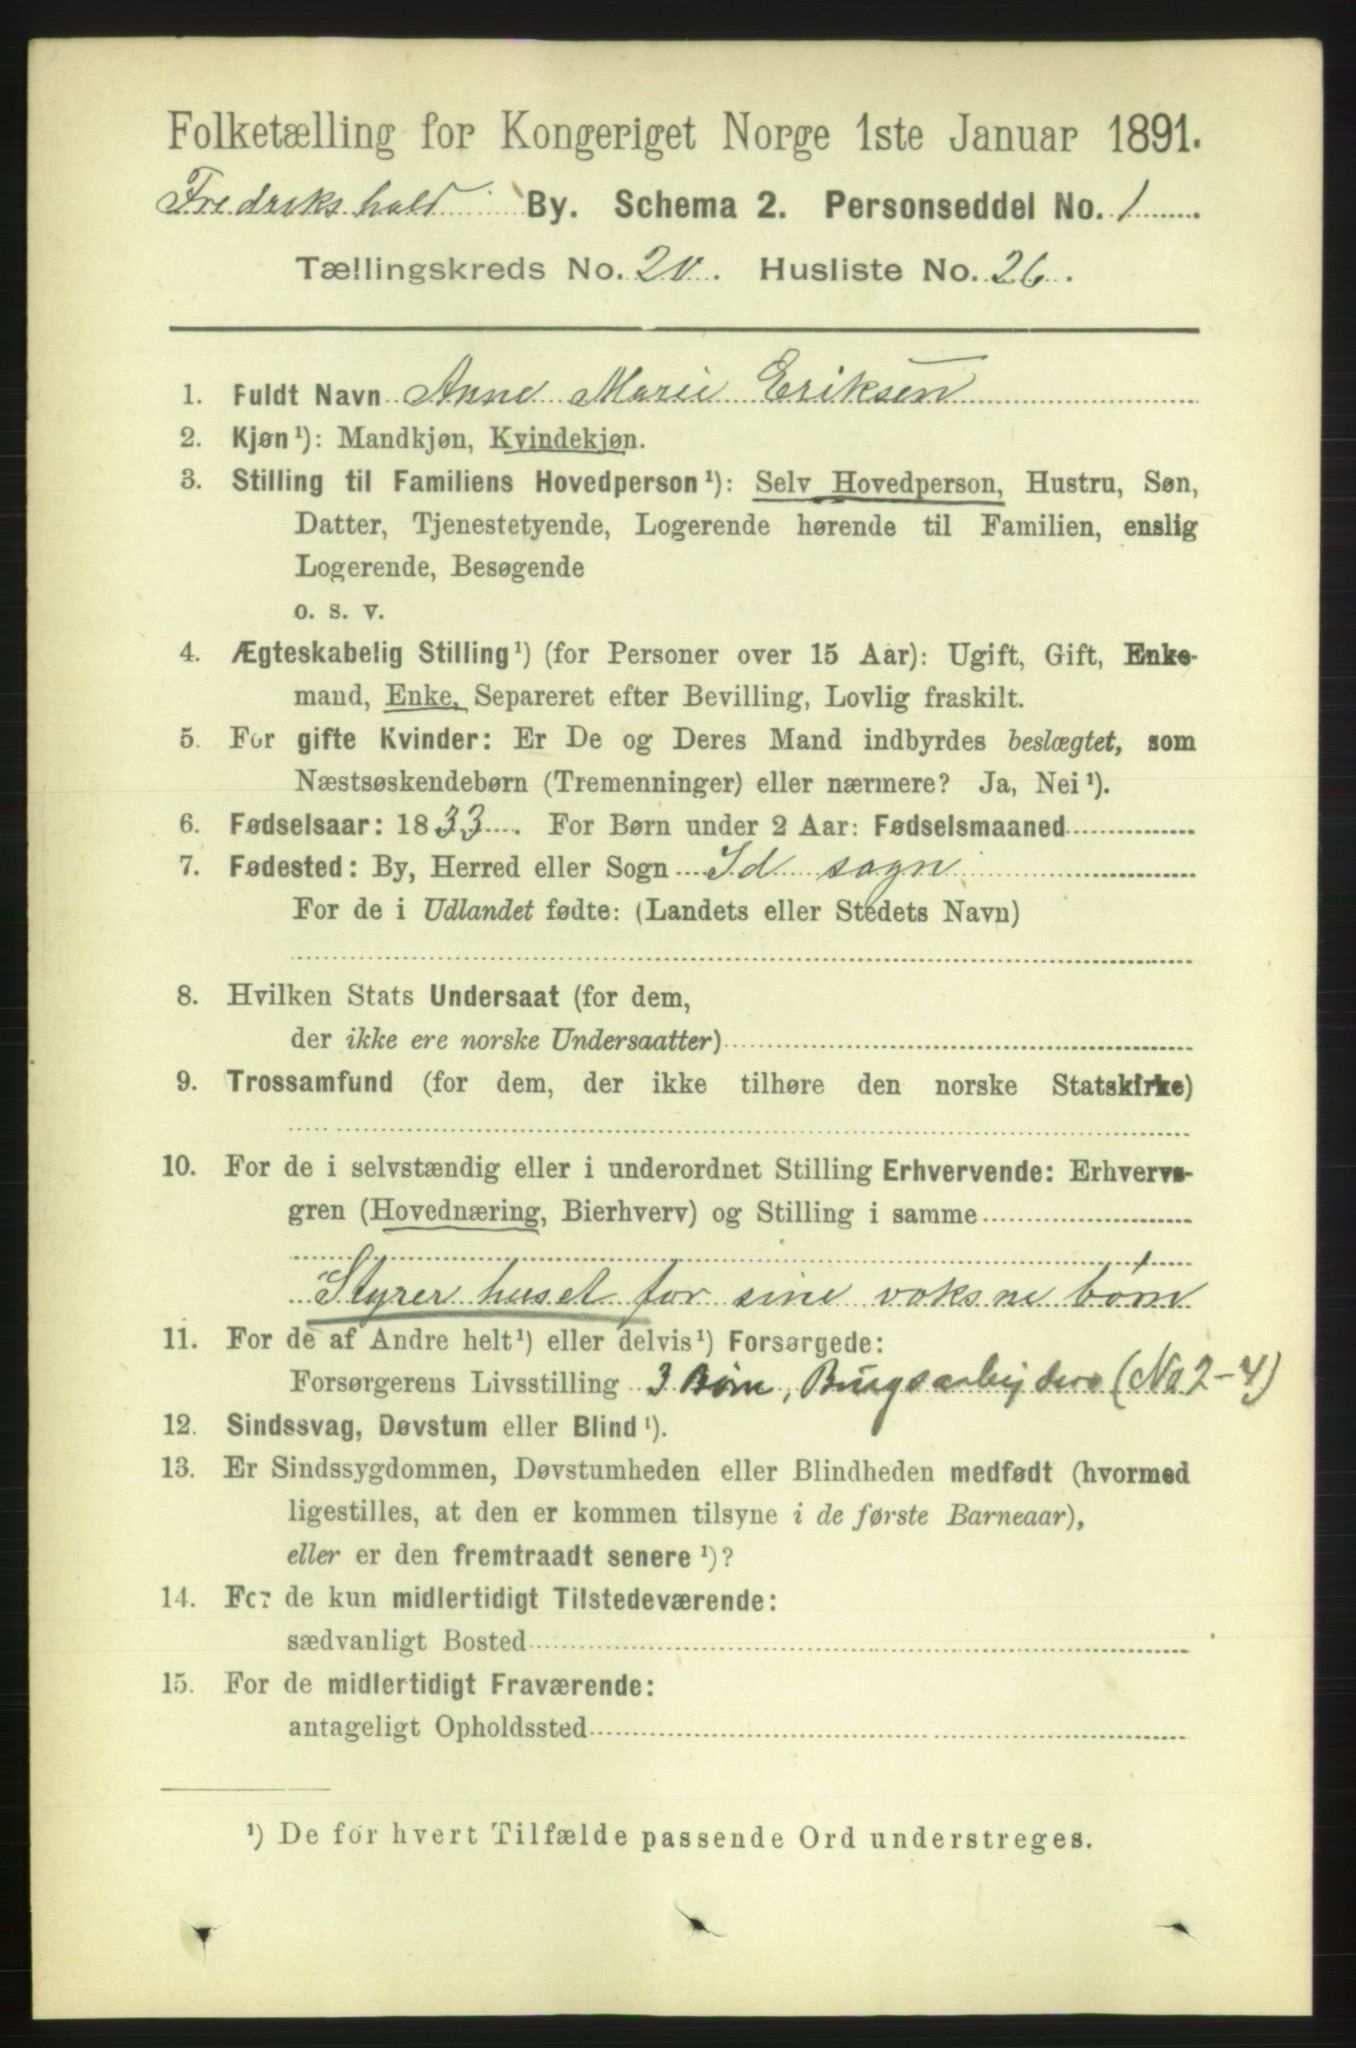 Folketælling for Kongeriget Norge 1ste Januar 1891.
Fredrikshald By. Schema 2. Personseddel No. 1.
Tællingskreds No. 20. Husliste No. 26.
1. Fuldt Navn Anne Marie Eriksen
2. Kjøn¹): Mandkjøn, Kvindekjøn.
3. Stilling til Familiens Hovedperson¹): Selv Hovedperson, Hustru, Søn,
Datter, Tjenestetyende, Logerende hørende til Familien, enslig
Logerende, Besøgende
o. s. v.
4. Ægteskabelig Stilling¹) (for Personer over 15 Aar): Ugift, Gift, Enke-
mand, Enke, Separeret efter Bevilling, Lovlig fraskilt.
5. For gifte Kvinder: Er De og Deres Mand indbyrdes beslægtet, som
Næstsøskendebørn (Tremenninger) eller nærmere? Ja, Nei¹).
6. Fødselsaar: 1833. For Børn under 2 Aar: Fødselsmaaned
7. Fødested: By, Herred eller Sogn Id sogn
For de i Udlandet fødte: (Landets eller Stedets Navn)
8. Hvilken Stats Undersaat (for dem,
der ikke ere norske Undersaatter)
9. Trossamfund (for dem, der ikke tilhøre den norske Statskirke)
10. For de i selvstændig eller i underordnet Stilling Erhvervende: Erhvervs-
gren (Hovednæring, Bierhverv) og Stilling i samme
Styrer huset for sine voksne børn
11. For de af Andre helt¹) eller delvis¹) Forsørgede:
Forsørgerens Livsstilling 3 Børn, Brugsarbejdere (No 2-4)
12. Sindssvag, Døvstum eller Blind¹).
13. Er Sindssygdommen, Døvstumheden eller Blindheden medfødt (hvormed
ligestilles, at den er kommen tilsyne i de første Barneaar),
eller er den fremtraadt senere¹)?
14. For de kun midlertidigt Tilstedeværende:
sædvanligt Bosted
15. For de midlertidigt Fraværende:
antageligt Opholdssted
¹) De for hvert Tilfælde passende Ord understreges.